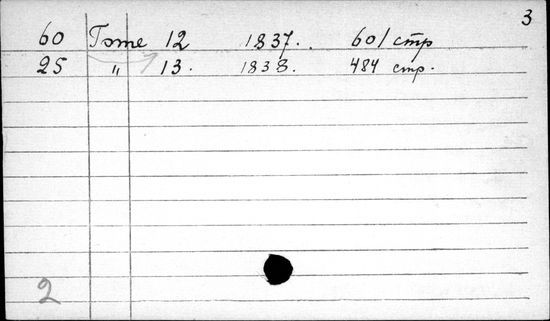 3
60 Tome 12 1837. 601 стр
25 " 13. 1838. 484 стр.
2